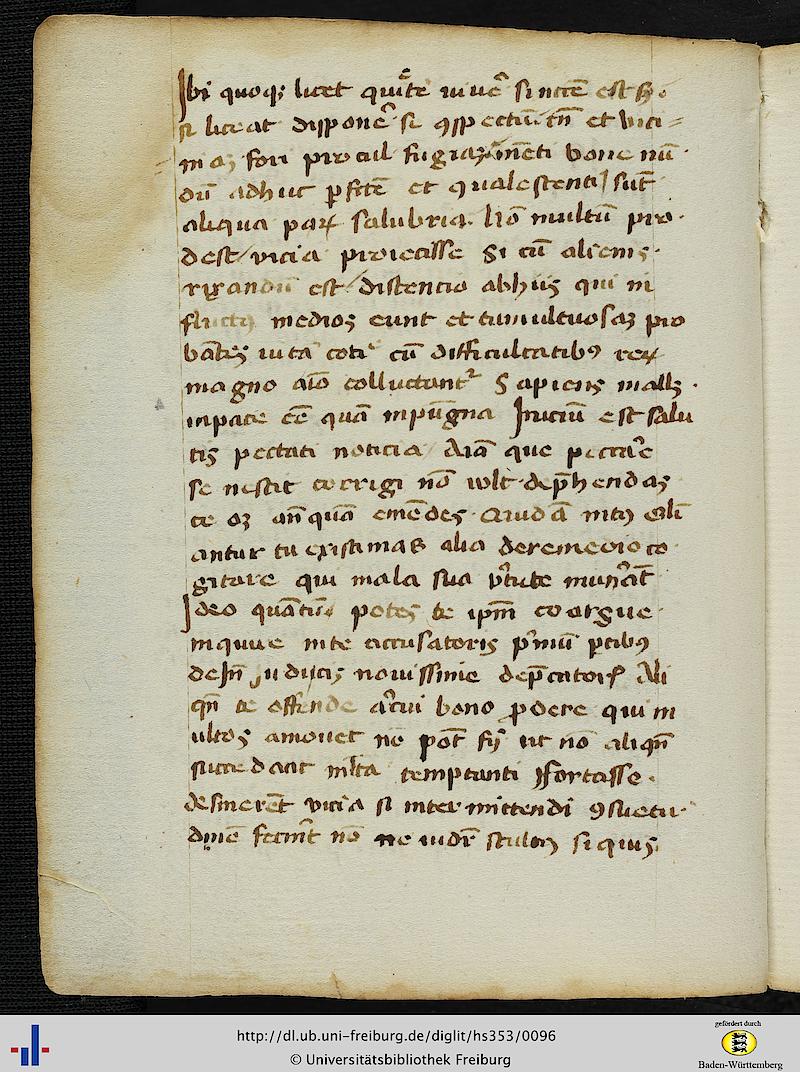 Ibi quoqꝫ licet quiēte viuē si necē est sꝫ
si liceat disponē se ꝯspectū tn̄ et vici
niaꝫ fori procul fugiaꝫ menti bone nū
dū adhuc ꝑfecte et ꝯualescenti sūt
aliqua paꝝ salubria Nō multū pro
dest vicia proiecisse Si cū alienis
rixandū est distencio abhijs qui in
fluctꝯ medios eunt et tumultuosaꝫ pro
bātes vitā coti cū difficultatibꝯ reꝝ
magno aīo colluctantr Sapiens mallꝫ
inpace eē quā inpūgna Iniciū est salu
tis peccati noticia Nā que peccare
se nescit corrigi nō wlt dep̄hendas
te oꝫ anquā emēdes Quidā
antur tu existimas aliq̄ deremedio co
gitare qui mala sua v̄tute mun̄āt
Ideo quātū potes te ipm̄ coargue
inquire inte accusatoris p̄mū ꝑtibꝯ
dein̄ judicis nouissime dep̄catoris Ali
qn̄ te offende
ultos amouet nō pōt fi ut nō aliqn̄
succedant temptanti ffortasse
desinerēt vicia si intermittendi ꝯsuetu
dinē fecint nō ne vidr̄ stultꝯ siquis
http://dl.ub.uni-freiburg.de/diglit/hs353/0096
© Universitätsbibliothek Freiburg
gefördert durch
Baden-Württemberg